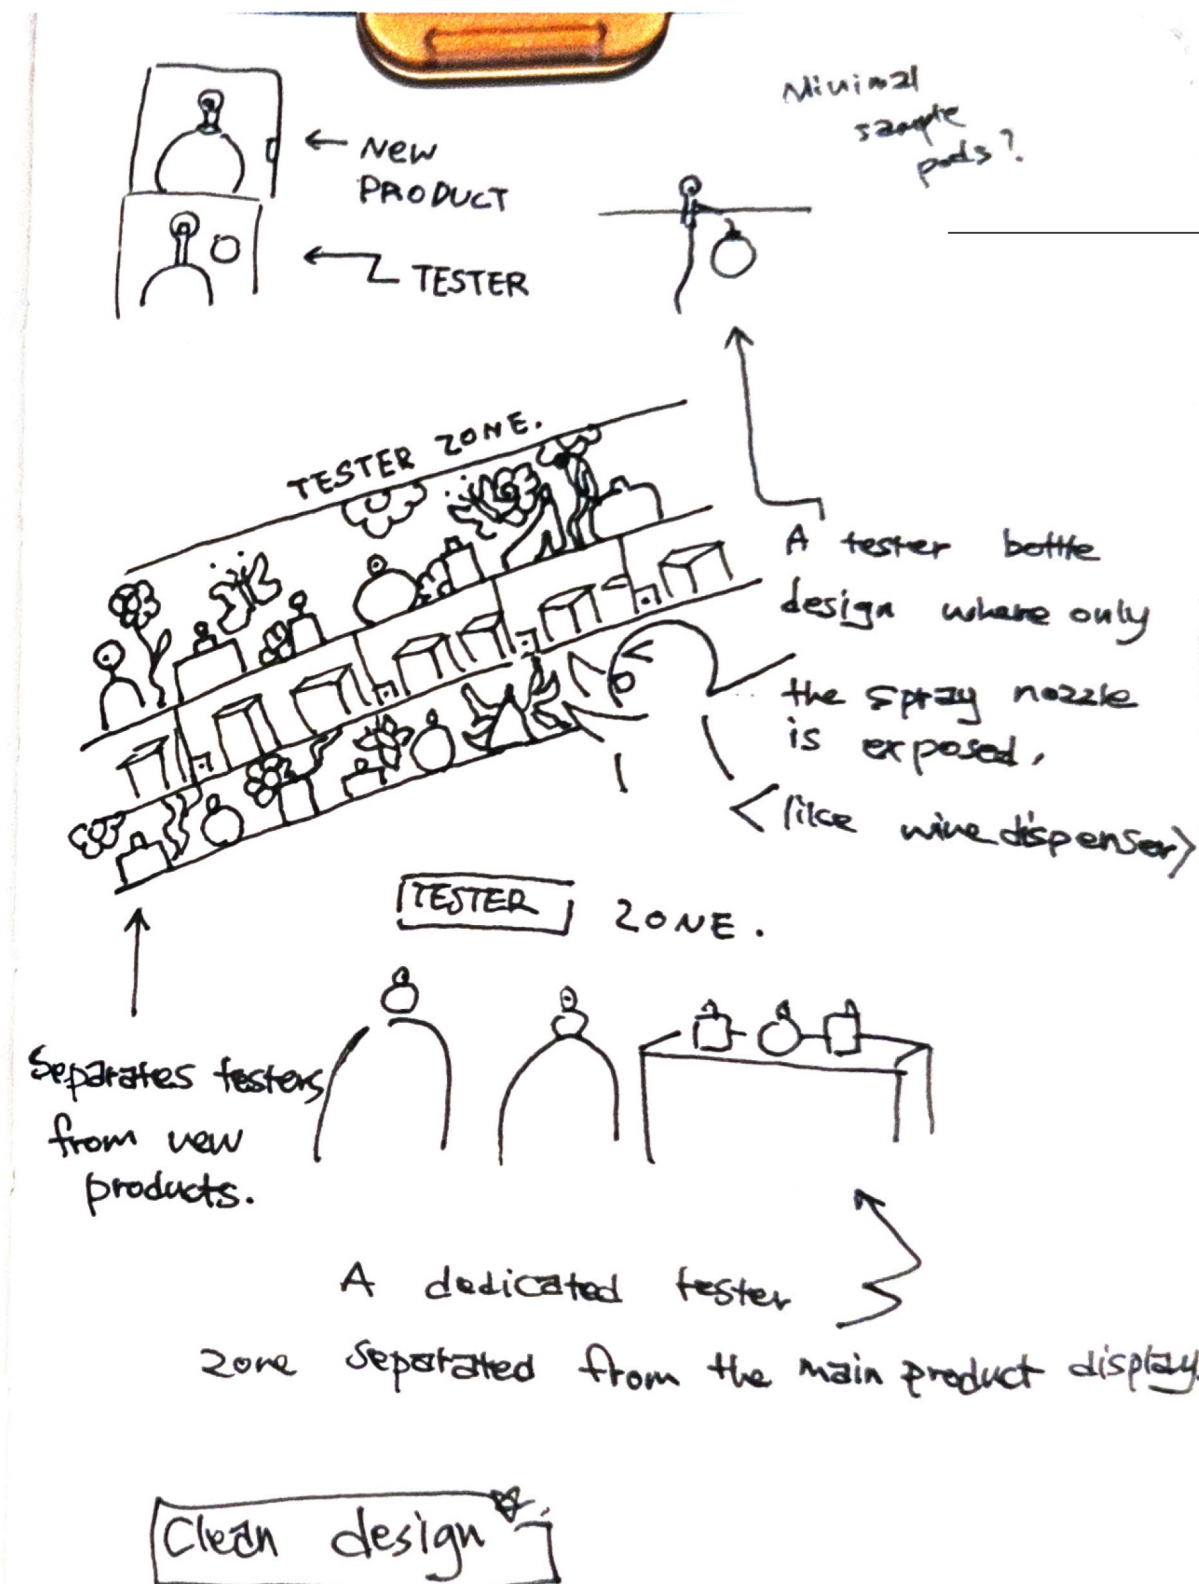 Minimal
sample
pods?
NEW
PRODUCT
TESTER
TESTER ZONE.
A tester bottle
design where only
the spray nozzle
is exposed,
<like wine dispenser>
TESTER ZONE.
Separates testers
from new
products.
A dedicated tester
zone separated from the main product display.
Clean design